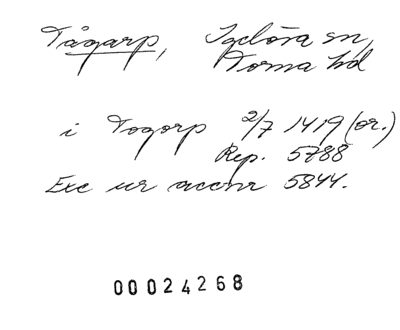 Tågarp, Igelösa sn,
Torna hd
i Togorp 2/7 1419 (or.)
Rep. 5788
Exc ur accnr 5844.
00024268